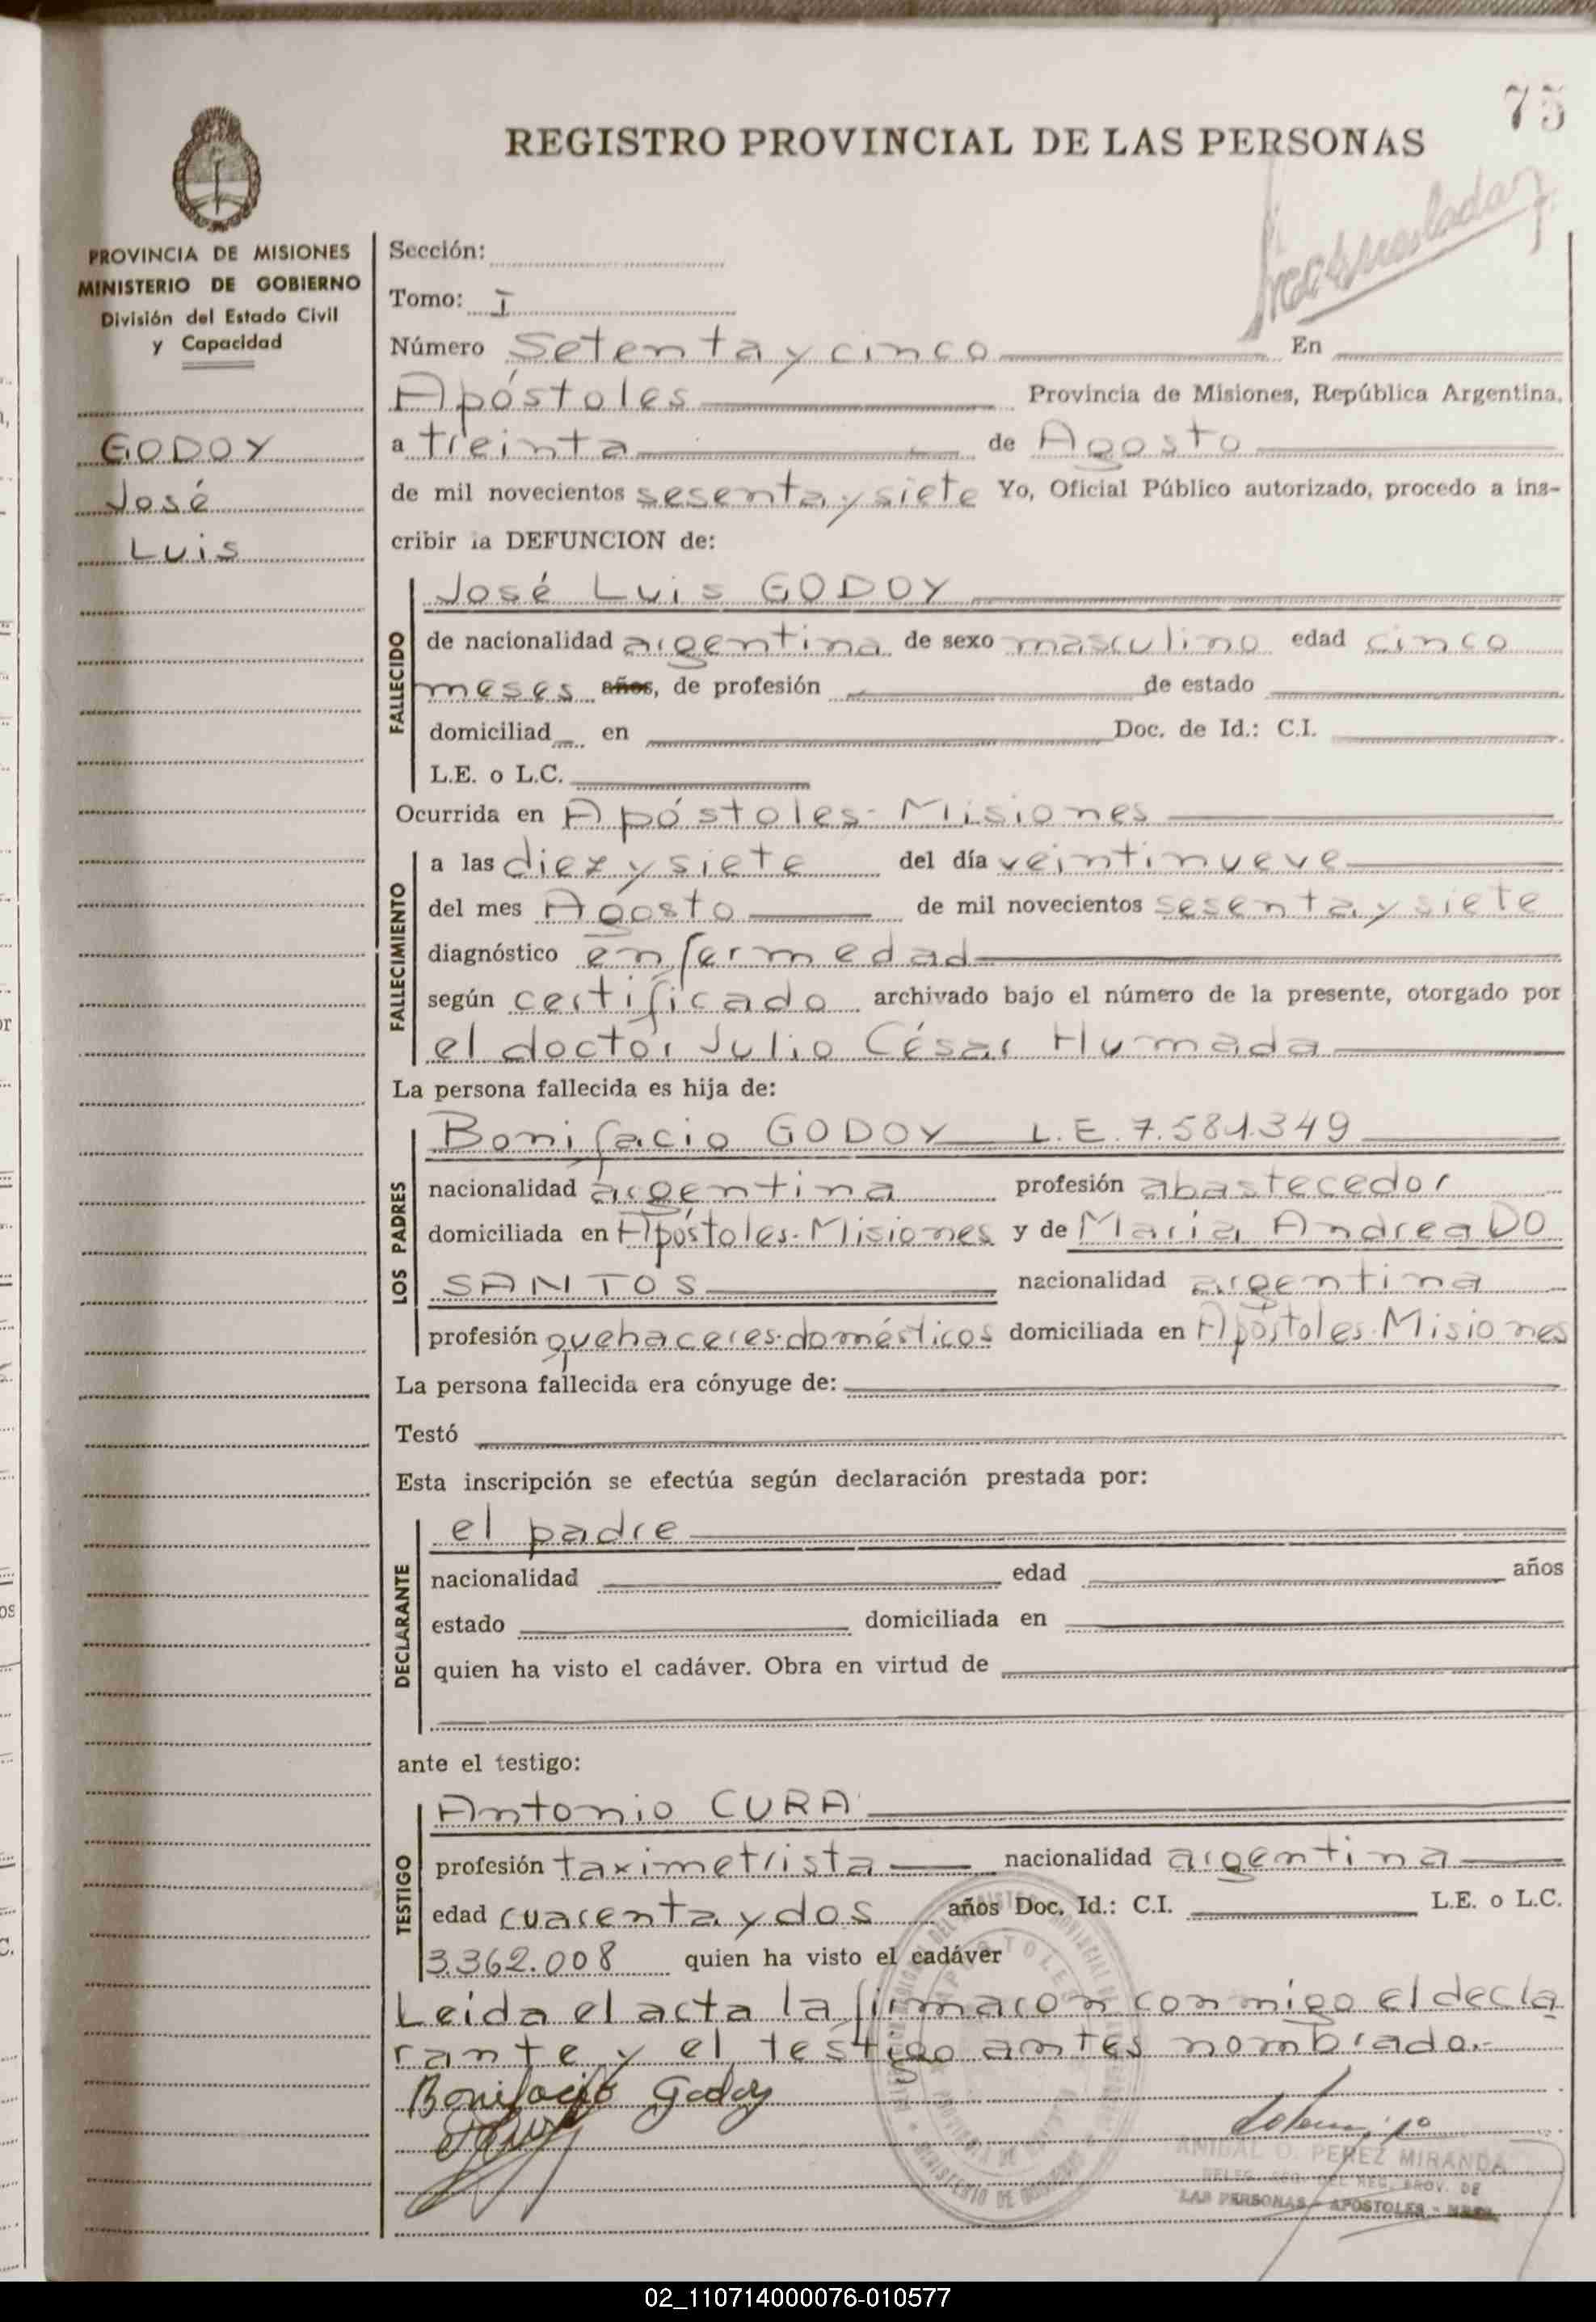 75
REGISTRO PROVINCIAL DE LAS PERSONAS
PROVINCIA DE MISIONES
MINISTERIO DE GOBIERNO
División del Estado Civil
y Capacidad
GODOY
José
Luis
Sección:
Tomo: I
Número Setenta y cinco En
Apóstoles Provincia de Misiones, República Argentina,
a treinta de Agosto
de mil novecientos sesenta y siete Yo, Oficial Público autorizado, procedo a ins-
cribir la DEFUNCION de:
FALLECIDO
José Luis GODOY
de nacionalidad argentina de sexo masculino edad cinco
meses años, de profesión de estado
domiciliad en Doc. de Id.: C.I.
L.E. o L.C.
Ocurrida en Apóstoles - Misiones
FALLECIMIENTO
a las diez y siete del día veintinueve
del mes Agosto de mil novecientos sesenta y siete
diagnóstico enfermedad
según certificado archivado bajo el número de la presente, otorgado por
el doctor Julio César Humada
La persona fallecida es hija de:
LOS PADRES
Bonifacio GODOY L.E. 7.581.349
nacionalidad argentina profesión abastecedor
domiciliada en Apóstoles - Misiones y de María Andrea DO
SANTOS nacionalidad argentina
profesión quehaceres domésticos domiciliada en Apóstoles - Misiones
La persona fallecida era cónyuge de:
Testó
Esta inscripción se efectúa según declaración prestada por:
DECLARANTE
el padre
nacionalidad edad años
estado domiciliada en
quien ha visto el cadáver. Obra en virtud de
ante el testigo:
TESTIGO
Antonio CURA
profesión taximetrista nacionalidad argentina
edad cuarenta y dos años Doc. Id.: C.I. L.E. o L.C.
3.362.008 quien ha visto el cadáver
Leida el acta la firmaron conmigo el decla
rante y el testigo antes nombrado.-
Bonifacio Godoy
ANIBAL O. PEREZ MIRANDA
DEL REG. PROV. DE
LAS PERSONAS - APOSTOLES - MNES.
02_110714000076-010577